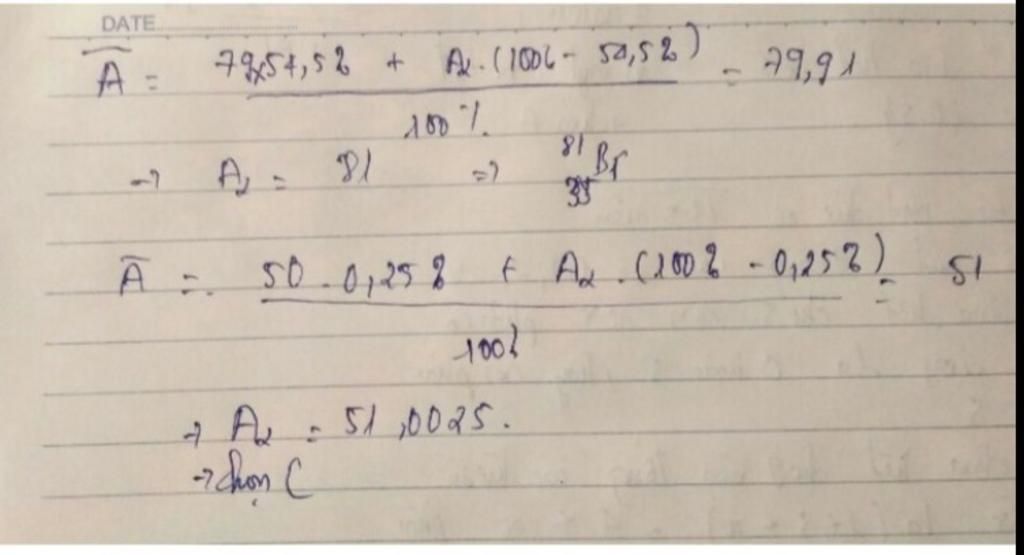 DATE
A̅ = 79x54,5% + A₂.(100% - 50,5%) = 79,91
100%
→ A₂ = 81 => ⁸¹₃₅Br
A̅ = 50 . 0,25% + A₂ . (100% - 0,25%) = 51
100%
→ A₂ = 51,0025.
→ chọn C